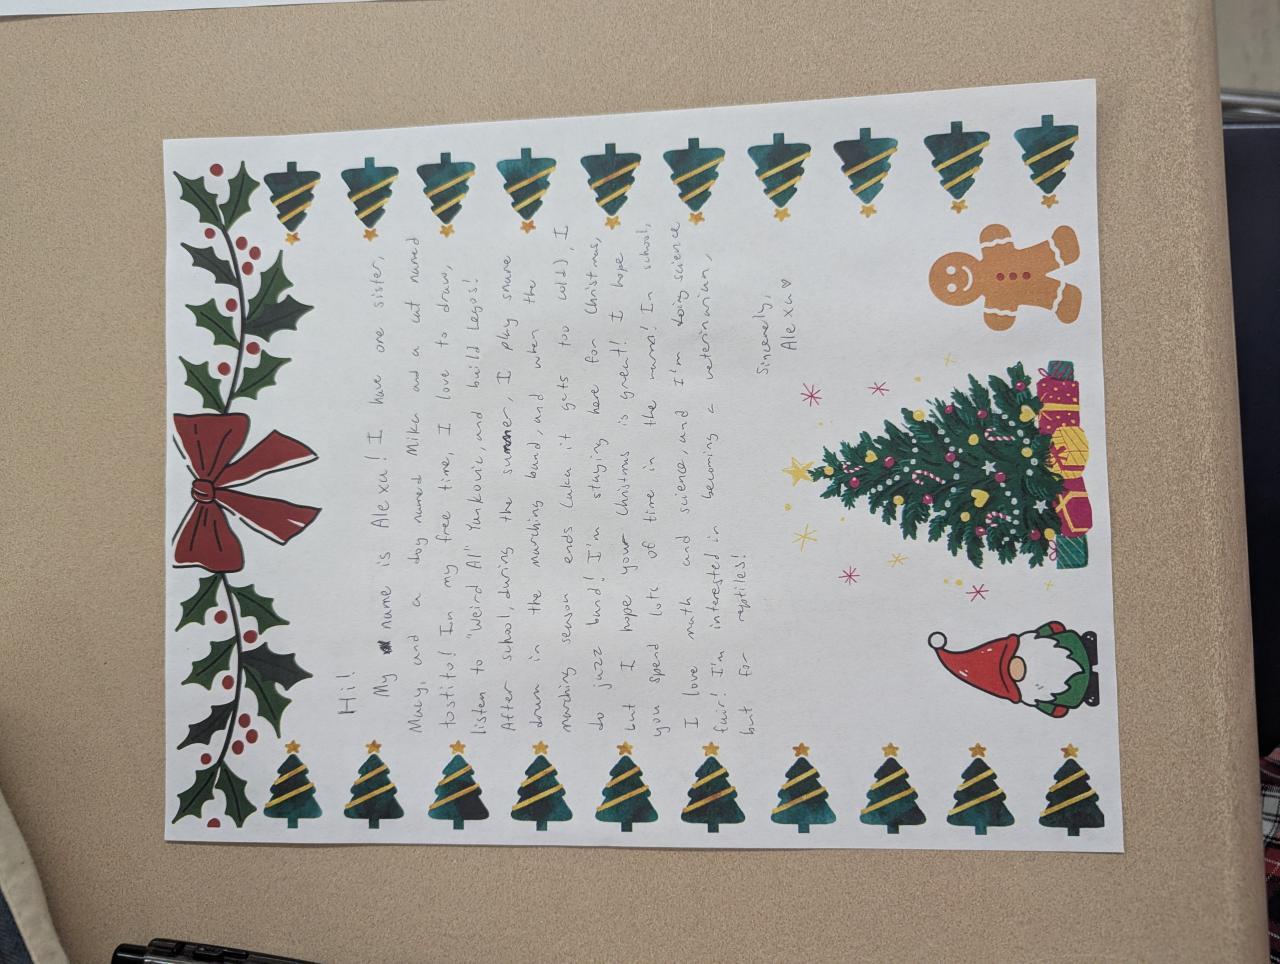 Hi!
My name is Alexa! I have one sister,
Macy, and a dog named Mika and a cat named
tostito! In my free time, I love to draw,
listen to "Weird Al" Yankovic, and build Legos!
After school, during the summer, I play snare
drum in the marching band, and when the
marching season ends (aka it gets too cold), I
do jazz band! I'm staying here for Christmas,
but I hope your Christmas is great! I hope
you spend lots of time in the  In school,
I love math and science, and I'm doing science
fair! I'm interested in becoming a veterinarian,
but for reptiles!
Sincerely,
Alexa ♥